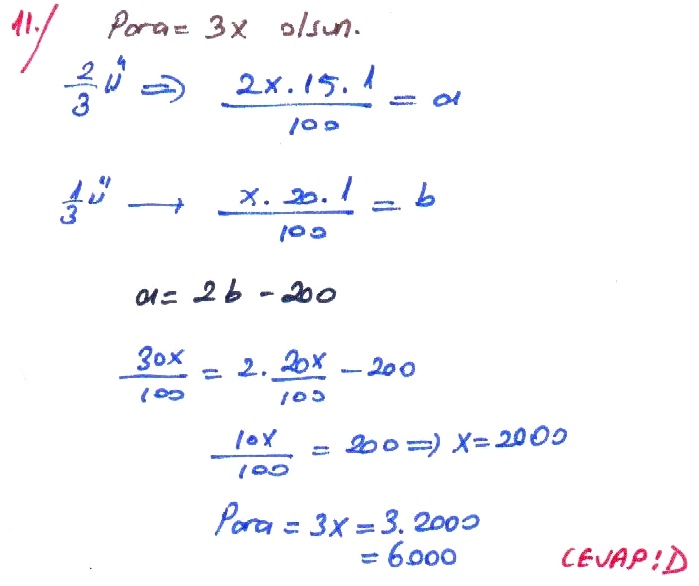 11.) Para = 3x olsun.
2/3 ü ⇒ 2x.15.1/100 = a
1/3 ü → x.20.1/100 = b
a = 2b - 200
30x/100 = 2. 20x/100 - 200
10x/100 = 200 ⇒ x = 2000
Para = 3x = 3.2000
= 6000
CEVAP:D